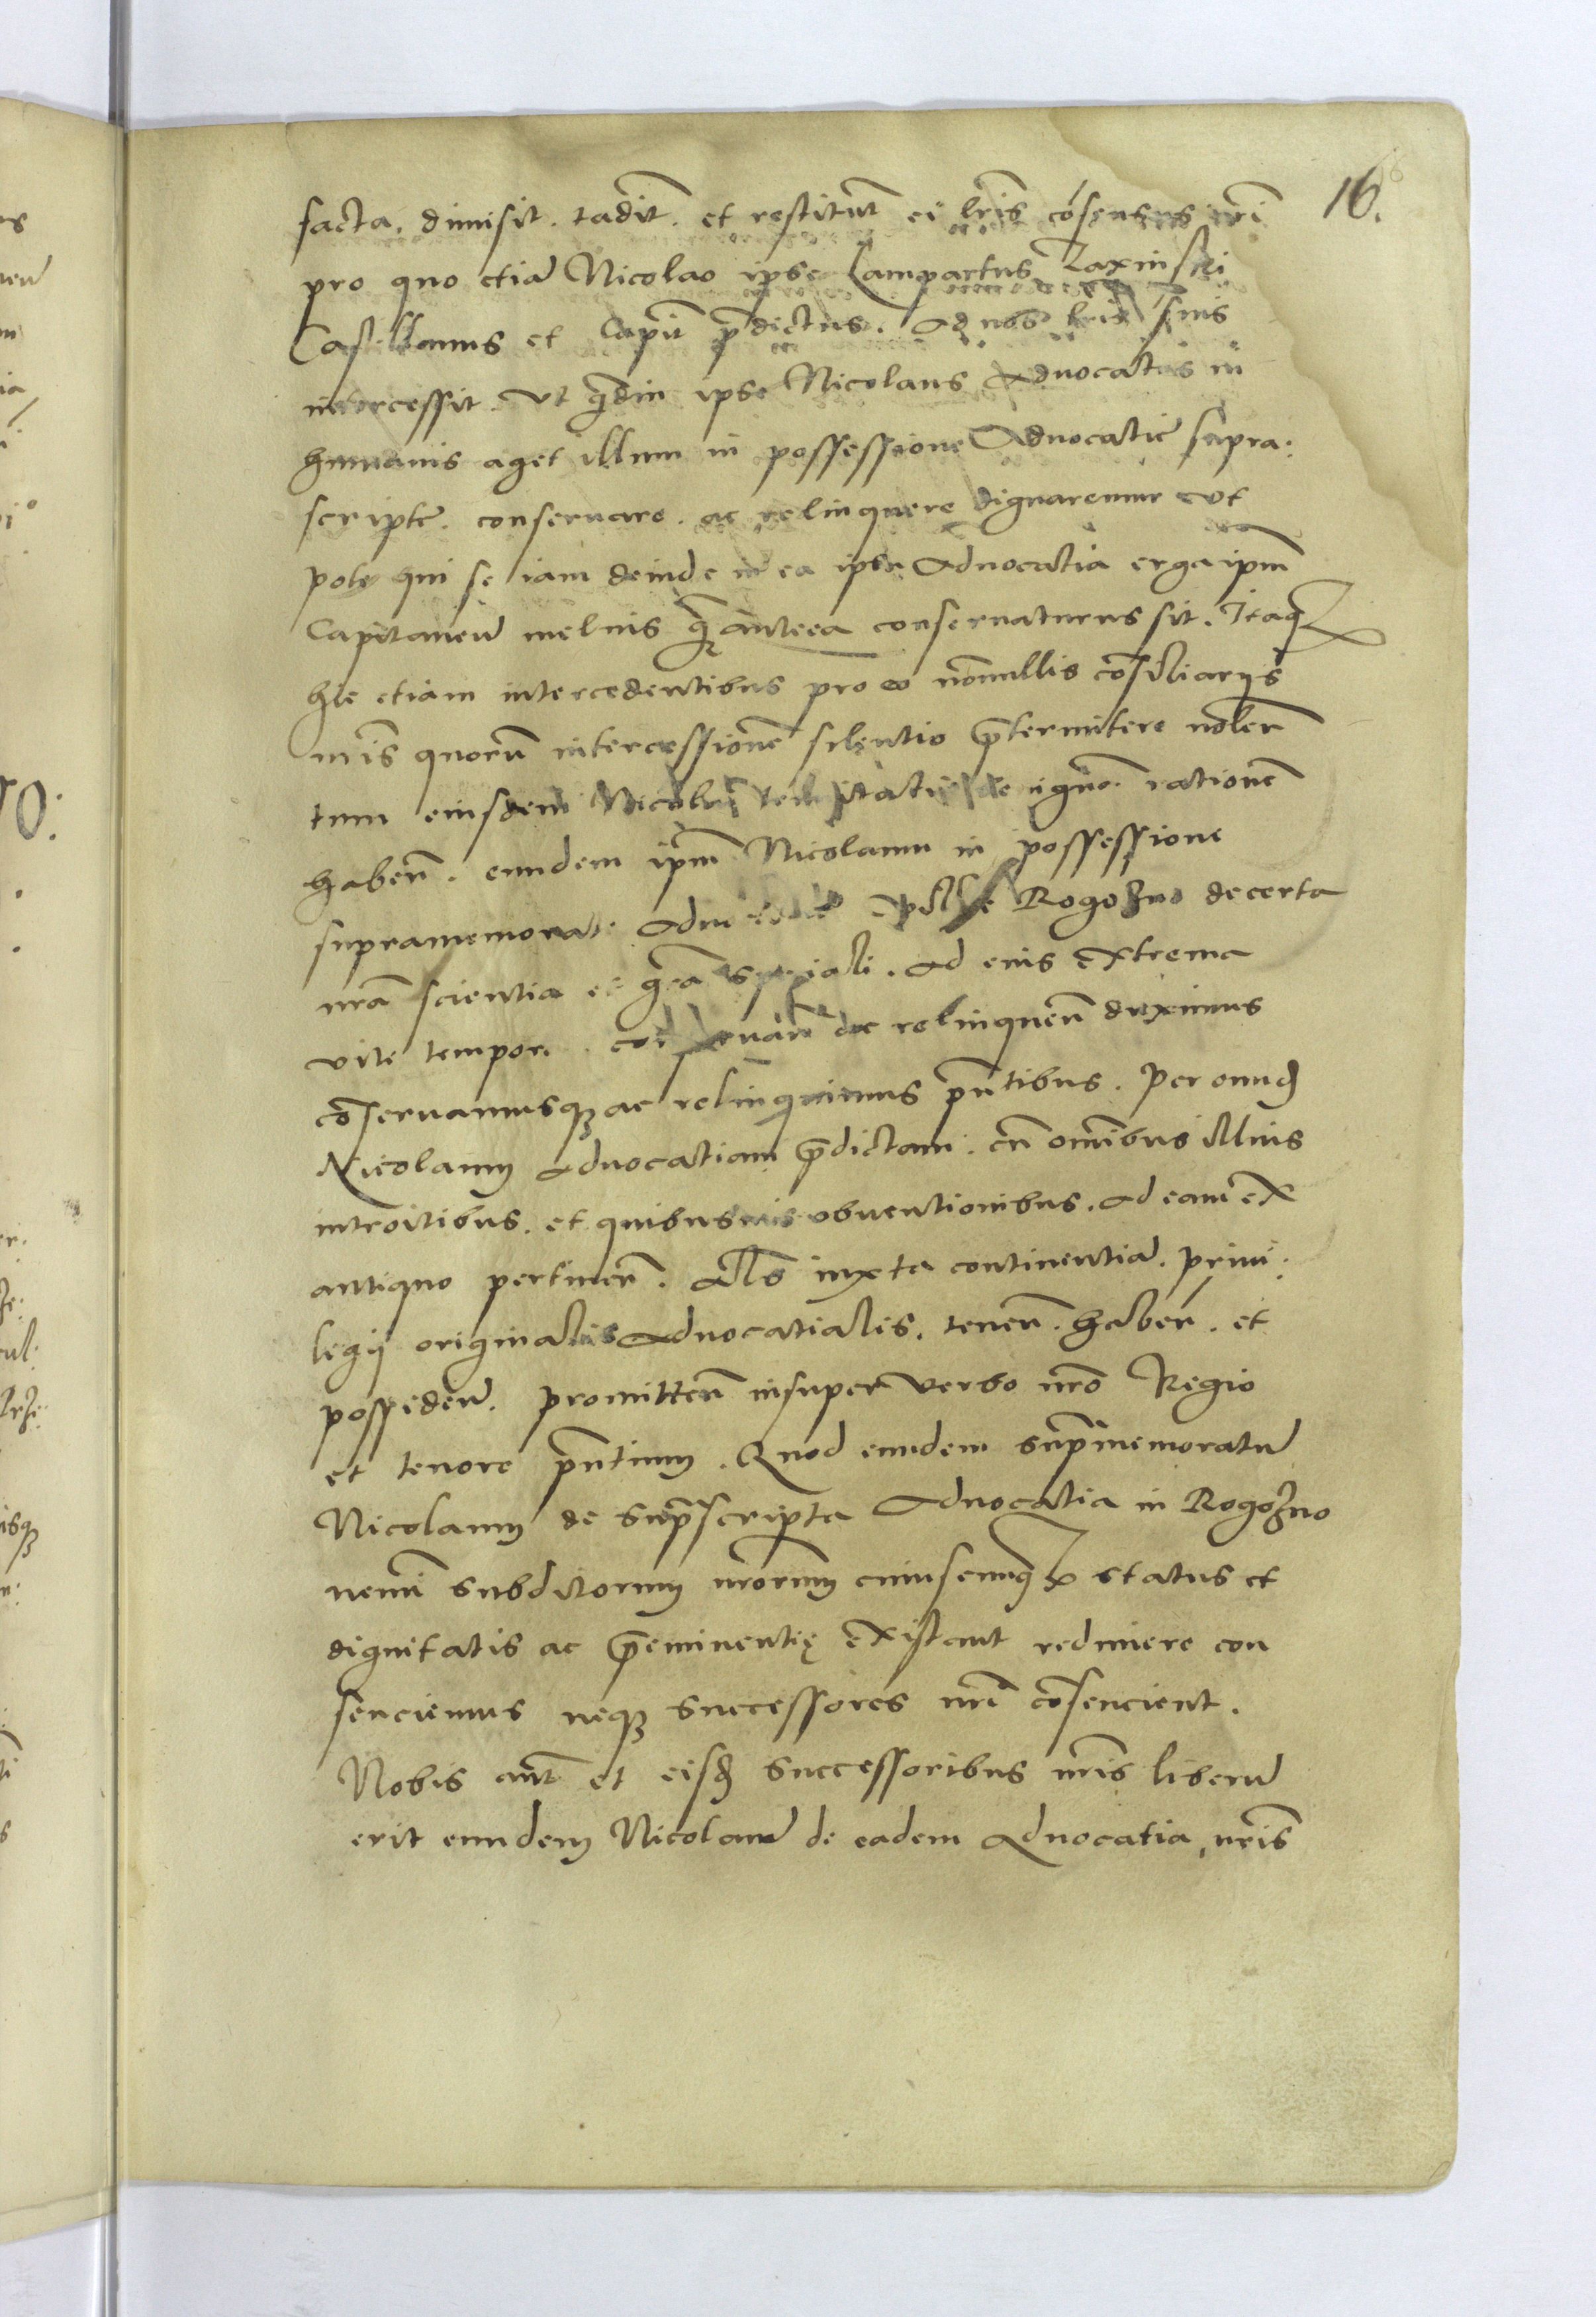 16.
facta. dimisit. tadit. et restituit ei lr̃is cõsensus nr̃i
pro quo etiã Nicolao ipse Lampartus Laxinski
Castellanus et Capit p̃dictus. ad nos lr̃is suis
intercessit. Vt q̃diu ipse Nicolaus Aduocatus in
humanis aget illum in possessione Aduocatie supra:
scripte. conseruare. ac relinquere dignaremur vt
pote qui se iam deinde in ea ipsa Aduocatia erga ipm̃
Capitaneũ melius q̃ȝ anteea conseruaturus sit. Itaqȝ
hic etiam intercedentibus pro eo nõnullis cõsiliarys
nr̃is quorũ intercessionẽ silentio p̃termitere noleñ
tum eiusdem Nicolai rationẽ
habeñ. eundem ipm̃ Nicolaum in possessione
supramemorate Rogozno de certa
nr̃a scientia et gr̃a speciali. ad eius extrema
vite tempora. conseruañ ac relinqueñ duximus
cõseruamusqȝ ac relinquimus p̃ntibus. Per eund̃
Nicolaum aduocatiam p̃dictam. cũ om̃ibus illius
introitibus. et quibusuis obuentionibus. ad eam ex
antiquo pertineñ. Al̃s iuxta continentiã. priui:
legij originalis aduocatialis. teneñ. habeñ. et
possideñ. promitteñ insuper verbo nr̃o Regio
et tenore p̃ntium. Quod eundem sup̃memoratũ
Nicolaum de sup̃scripta Aduocatia in Rogozno
nemini subditorum nr̃orum cuiuscunqȝ status et
dignitatis ac p̃eminentię existant redimere con
senciemus neqȝ successores nr̃i cõsencient.
Nobis aut̃ et eisd̃ successoribus nr̃is liberũ
erit eundem Nicolaũ de eadem aduocatia nr̃is